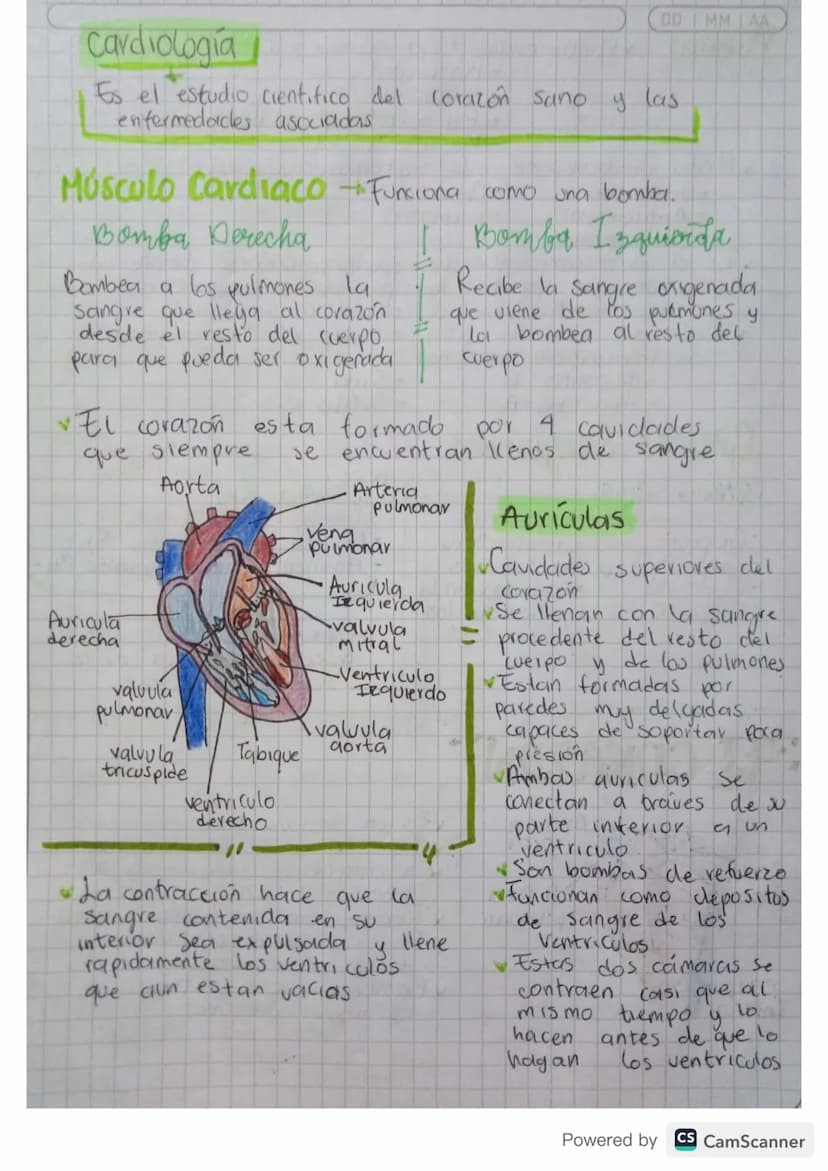 DD | MM | AA
Cardiología
Es el estudio científico del corazón sano y las
enfermedades asociadas
Músculo Cardiaco → Funciona como una bomba.
Bomba Derecha
Bombea a los pulmones la
sangre que llega al corazón
desde el resto del cuerpo
para que pueda ser oxigenada
Bomba Izquierda
Recibe la sangre oxigenada
que viene de los pulmones y
la bombea al resto del
cuerpo
El corazón esta formado por 4 cavidades
que siempre se encuentran llenos de sangre
Aorta
Arteria
pulmonar
Vena
pulmonar
Auricula
Izquierda
valvula
mitral
Ventriculo
Izquierdo
valvula
aorta
Tabique
ventriculo
derecho
valvula
tricuspide
valvula
pulmonar
Auricula
derecha
La contracción hace que la
sangre contenida en su
interior sea expulsada y llene
rapidamente los ventriculos
que aun estan vacias
Aurículas
Cavidades superiores del
corazón
Se llenan con la sangre
procedente del resto del
cuerpo y de los pulmones
Estan formadas por
paredes muy delgadas
capaces de soportar poca
presión
Ambas auriculas se
conectan a traives de su
parte inferior a un
ventriculo
Son bombas de refuerzo
Funcionan como depositos
de sangre de los
ventriculos
Estas dos cámaras se
contraen casi que al
mismo tiempo y lo
hacen antes de que lo
hagan los ventriculos
Powered by CS CamScanner